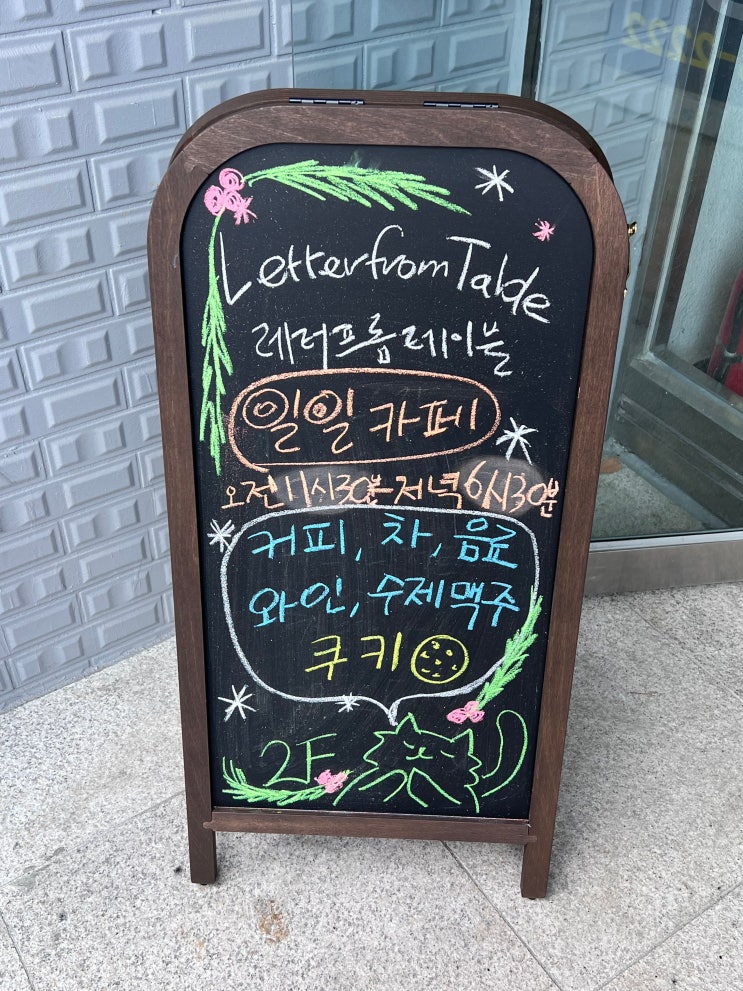 Letter from Table
레터프롬테이블
일일 카페
오전 11시30분-저녁 6시30분
커피, 차, 음료
와인, 수제맥주
쿠키
2F
-2222